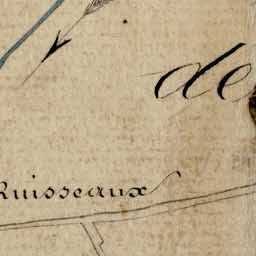 de
Ruisseaux